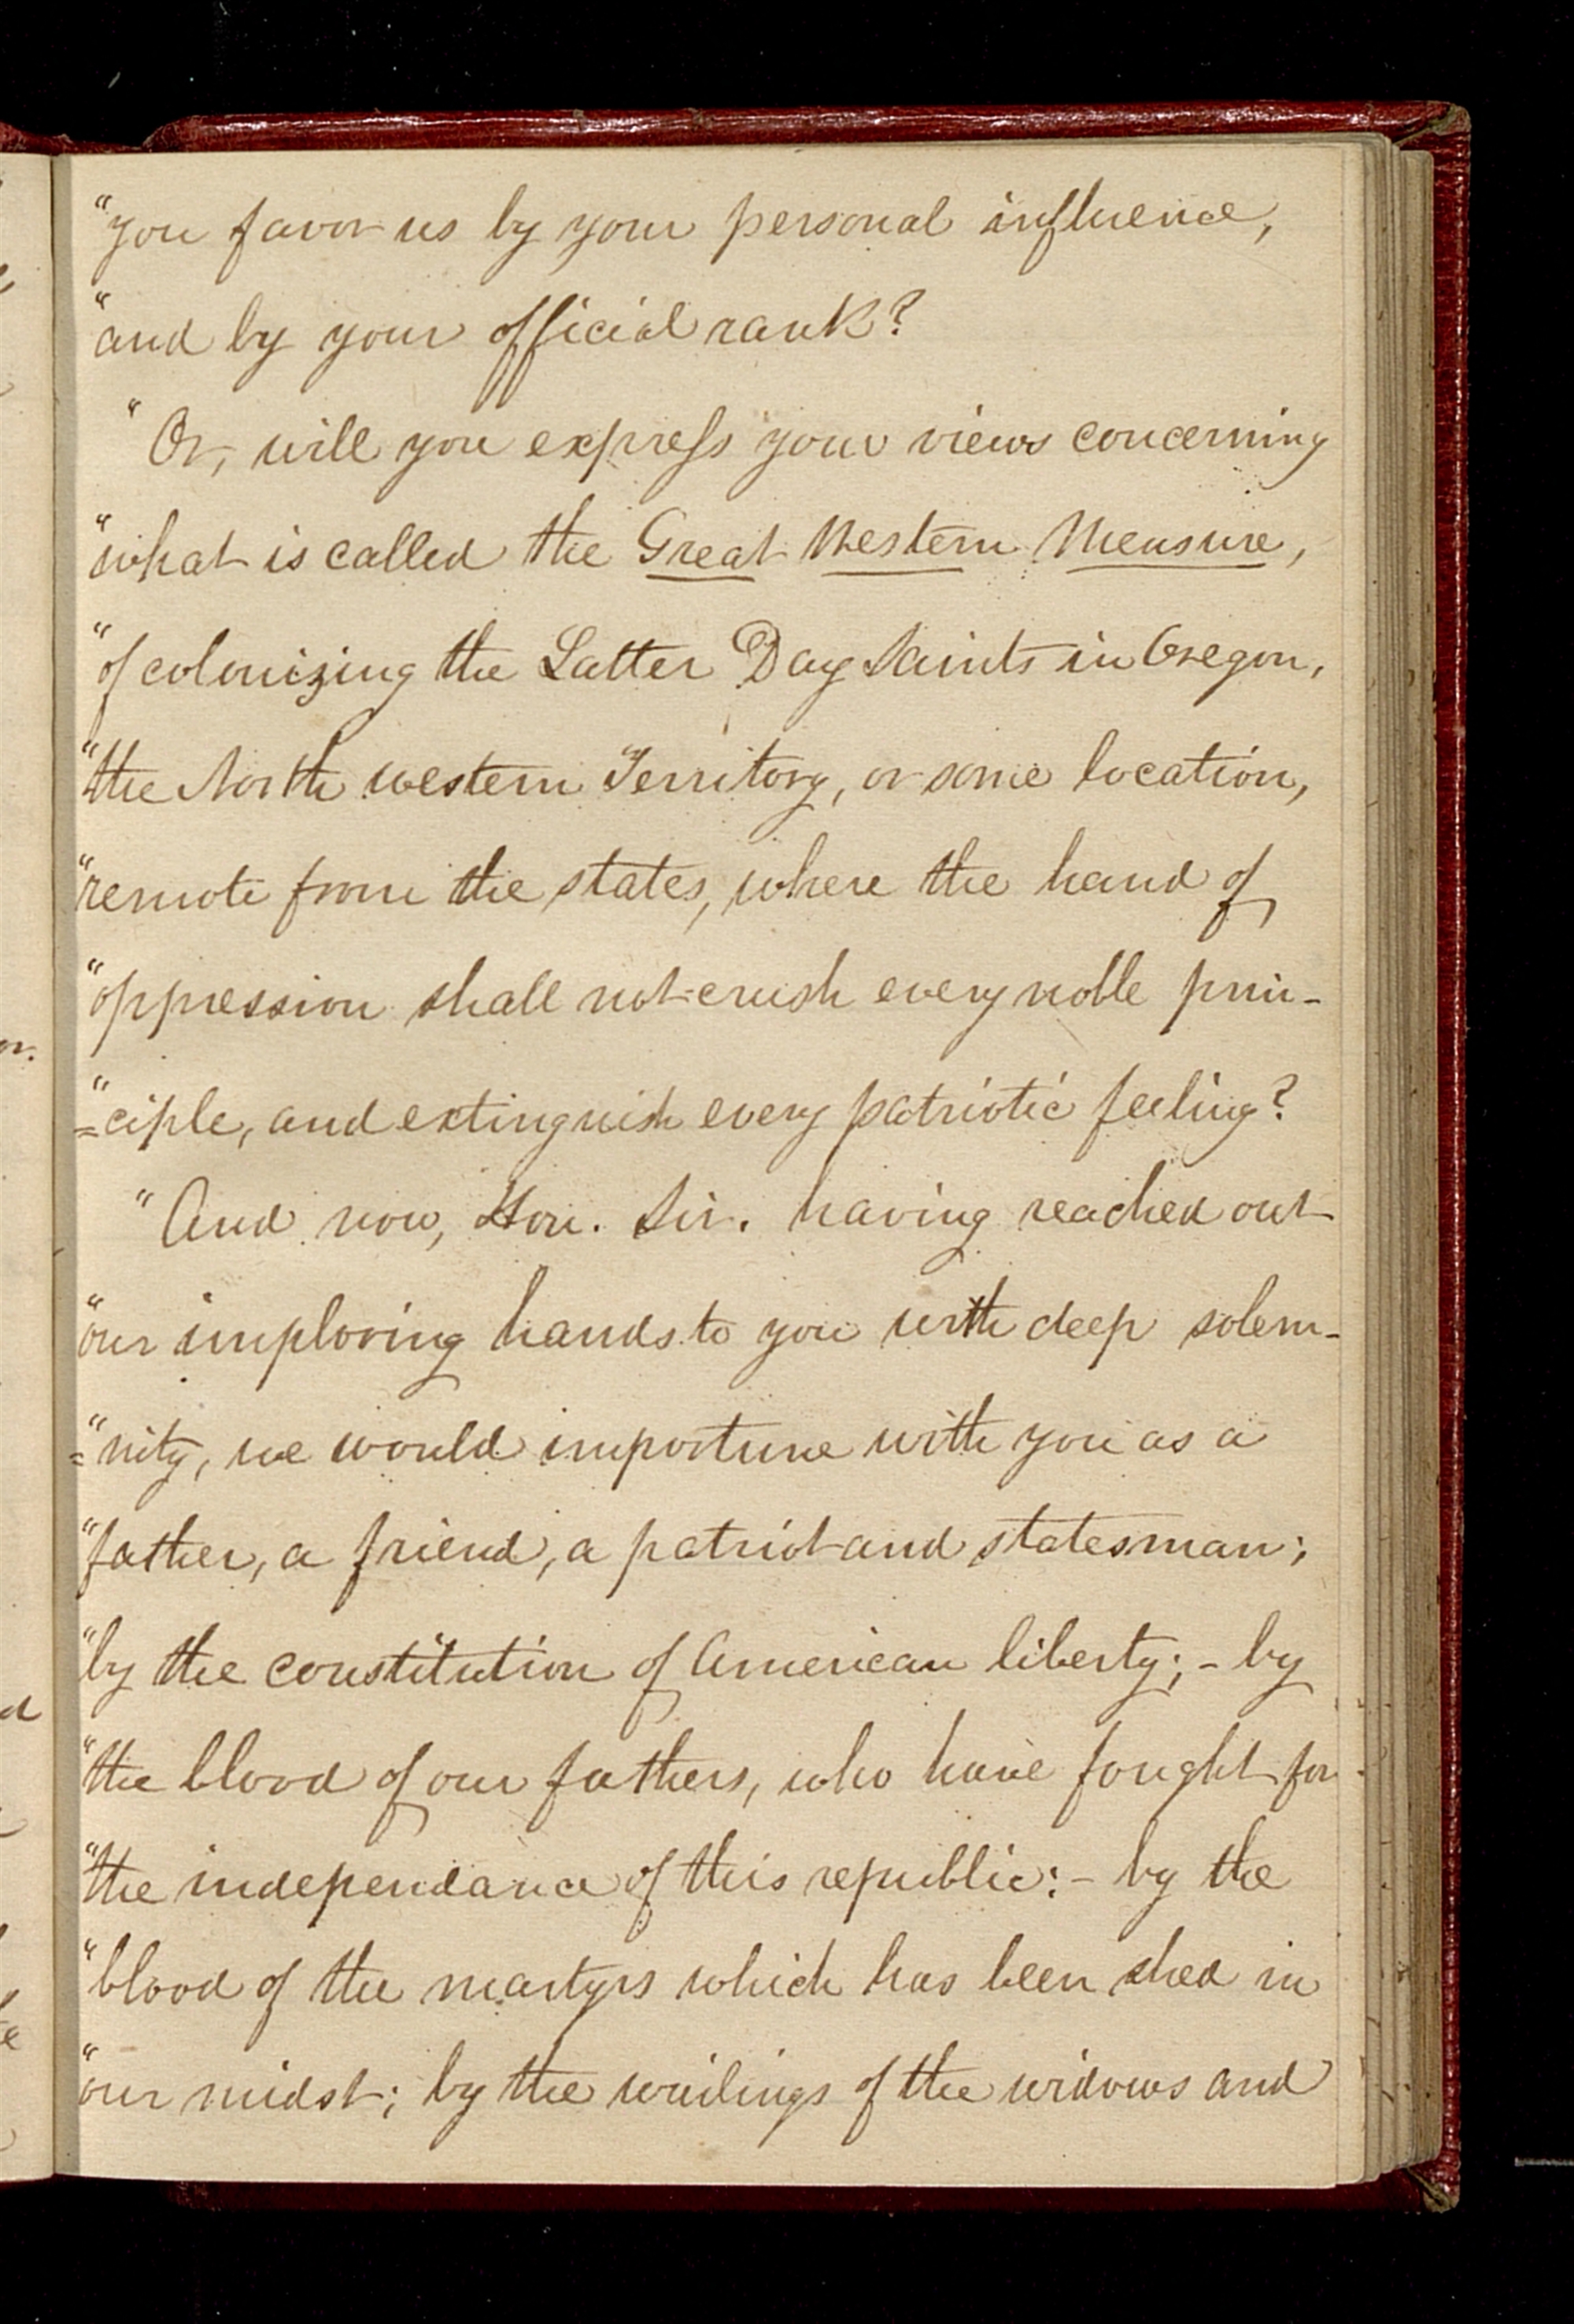 "you favor us by your personal influence,
"and by your official rank?
"Or, will you express your views concerning
"what is called the Great Western Measure,
"of colonizing the Latter Day Saints in Oregon,
"the North western Territory, or some location,
"remote from the states, where the hand of
"oppression shall not crush every noble prin-
"=ciple, and extinguish every patriotic feeling?
"And now, Hon. Sir. having reached out
"our imploring hands to you with deep solem-
"=nity, we would importune with you as a
"father, a friend, a patriot and statesman;
"by the constitution of American liberty; - by
"the blood of our fathers, who have fought for
"the independance of this republic: - by the
"blood of the martyrs which has been shed in
"our midst; by the wailings of the widows and